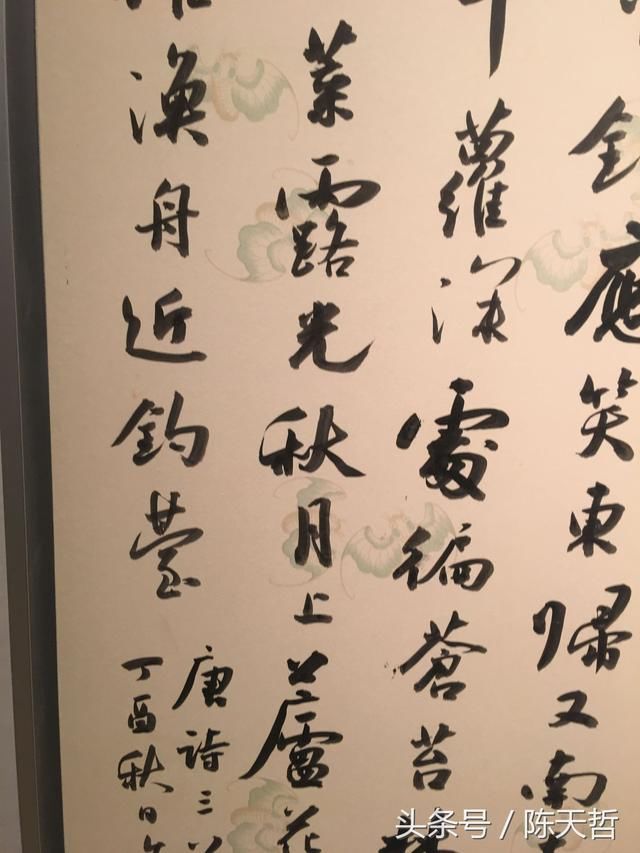 應笑東歸又南
蘿深處徧蒼苔
葉露光秋月上蘆花
漁舟近釣臺
唐詩三
丁酉秋日
头条号 / 陈天哲